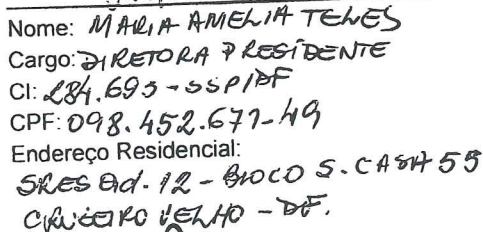 Nome: MARIA AMELIA TELES
Cargo: DIRETORA PRESIDENTE
CI: 284.695 - SSP/DF
CPF: 098.452.671-49
Endereço Residencial:
SRES Qd. 12 - BLOCO S. CASA 55
CRUZEIRO VELHO - DF.